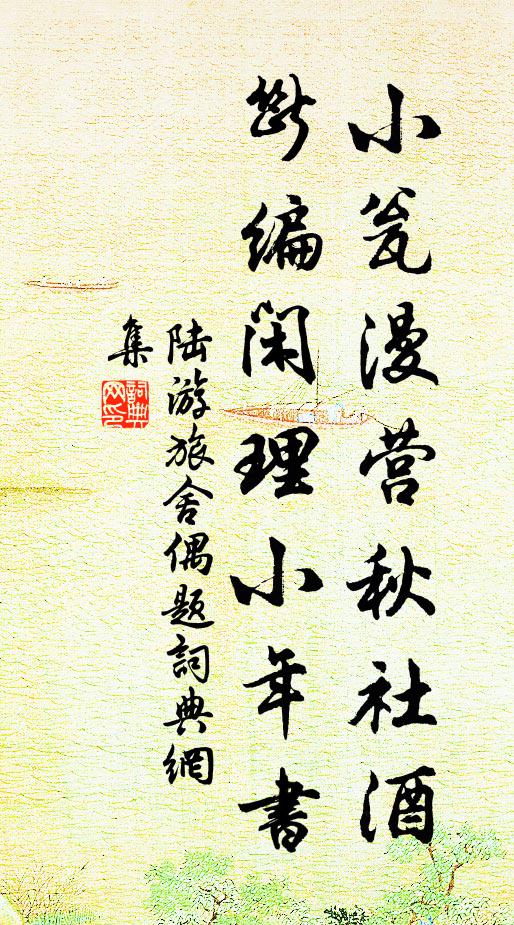 小瓮漫营秋社酒
断编闲理小年書
陆游旅舍偶题詞典網
集
詞典
网印